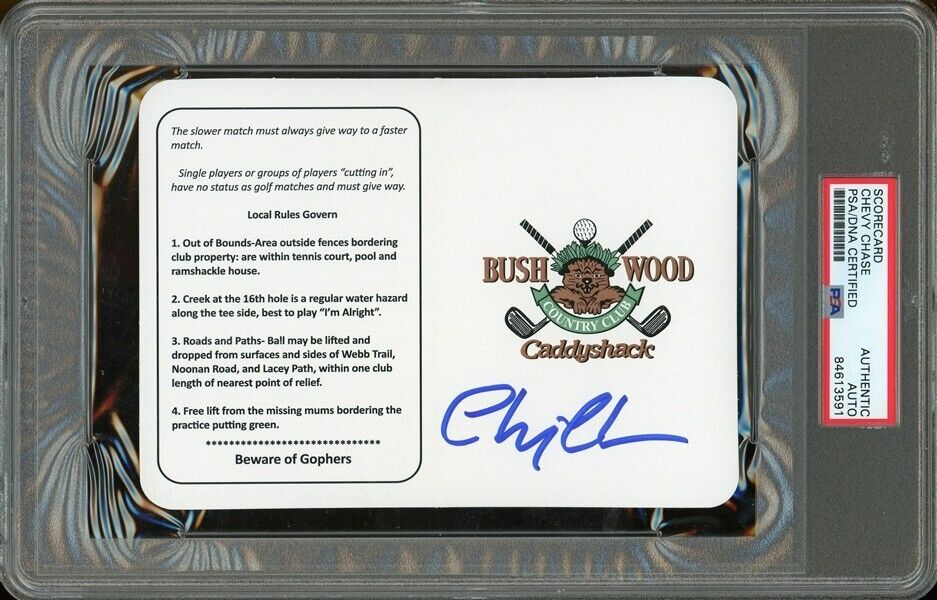 The slower match must always give way to a faster
match.
Single players or groups of players “cutting in”,
have no status as golf matches and must give way.
Local Rules Govern
1. Out of Bounds-Area outside fences bordering
club property: are within tennis court, pool and
ramshackle house.
2. Creek at the 16th hole is a regular water hazard
along the tee side, best to play “I’m Alright”.
3. Roads and Paths- Ball may be lifted and
dropped from surfaces and sides of Webb Trail,
Noonan Road, and Lacey Path, within one club
length of nearest point of relief.
4. Free lift from the missing mums bordering the
practice putting green.
********************************
Beware of Gophers
BUSH WOOD
COUNTRY CLUB
Caddyshack
SCORECARD
CHEVY CHASE
PSA/DNA CERTIFIED
PSA
AUTHENTIC
AUTO
84613591